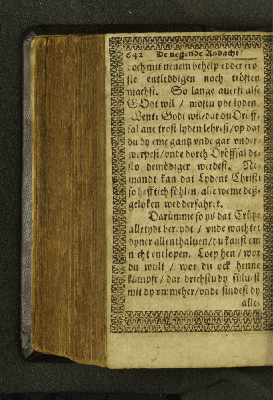 642 De negende Andacht
doch mit nenem behelp edder tro
ste entleddigen noch trösten
machst. So lange auerst alse
GOdt wil / mostu ydt lyden
Wente Godt wil / dat du Dröff-
sal ane trost lyden lehrest / vp dat
du dy eme gantz vnde gar vnder-
werpest / vnde dorch Dröffsal de-
sto demödiger werdest. Ne-
mandt kan dat Lydent Christi
so hefftich föhlen, alse weme desz-
gelyken wedderfahret.
Darümme so ys dat Crütze
alletydt beredt / vnde wachtet
dyner allenthaluen / du kanst em
nicht entlopen. Loep hen / wor
du wult / wor du ock henne
kümpst / dar drechstu dy sülu est
mit dy vmmeher / vnde findest dy
alle-